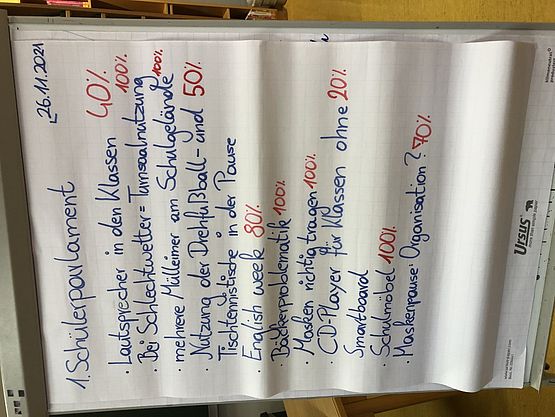 26.11.2021
1. Schülerparlament
· Lautsprecher in den Klassen 40%
· Bei Schlechtwetter = Turnsaalnutzung 100%
· mehrere Mülleimer am Schulgelände 100%
· Nutzung der Drehfußball- und 50%
Tischtennistische in der Pause
· English week 80%
· Bäckerproblematik 100%
· Masken richtig tragen 100%
· CD-Player für Klassen ohne 20%
Smartboard
· Schulmöbel 100%
· Maskenpause: Organisation? 70%
URSUS